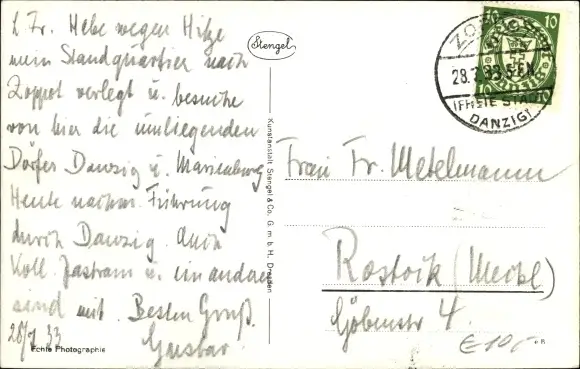 L. Fr. Habe wegen Hitze
mein Standquartier nach
Zoppot verlegt u. besuche
von hier die umliegenden
Dörfer Danzig u. Marienburg
Heute nachm. Führung
durch Danzig. Auch
Koll. Jastram u. ein anderer
sind mit. Besten Gruß.
28/7 33 Gustav
Echte Photographie
Stengel
Kunstanstalt Stengel & Co. G. m. b. H. Dresden
10 10
ZOPPOT
28.7.33
(FREIE STADT
DANZIG)
10 10
Frau Fr. Metelmann
Rostock (Meckl)
Göbenstr 4.
€10,-